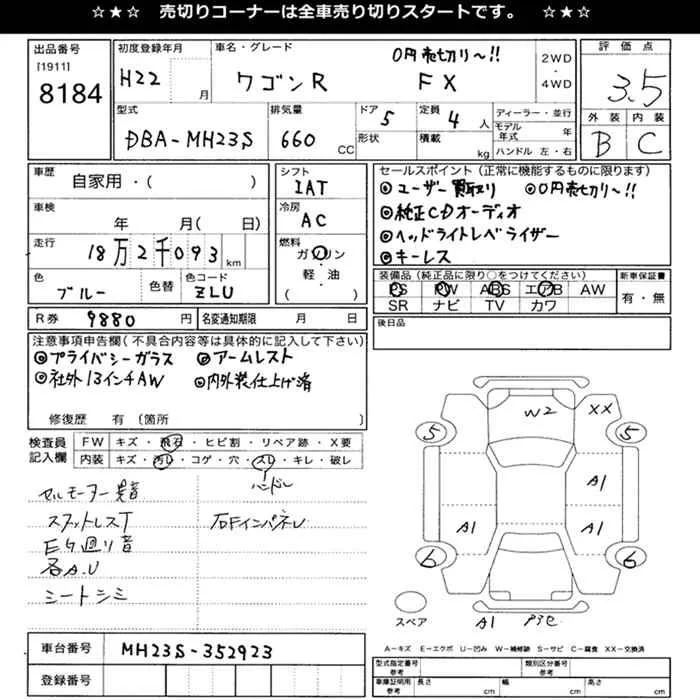 ☆★☆ 売切りコーナーは全車売り切りスタートです。 ☆★☆
出品番号
[1911]
8184
初度登録年月
H22
月
車名・グレード
0円売切り〜!!
ワゴンR FX
2WD
・
4WD
評価点
3.5
外装 内装
B C
型式
DBA-MH23S
排気量
660
CC
ドア
5
形状
定員
4
人
積載
kg
ディーラー・並行
モデル年式
年
ハンドル 左・右
車歴
自家用・( )
車検
年 月( 日)
走行
18万2千093km
色
ブルー
色替
色コード
ZLU
シフト
IAT
冷房
AC
燃料
ガソリン
軽・油
( )
セールスポイント(正常に機能するものに限ります)
◎ユーザー買取り ◎0円売切り〜!!
◎純正CDオーディオ
◎ヘッドライトレベライザー
◎キーレス
装備品(純正品に限り○をつけてください)
PS PW ABS エアB AW
SR ナビ TV カワ
新車保証書
有・無
R券
9880
円
名変通知期限 月 日
後日品
注意事項申告欄(不具合内容等は具体的に記入して下さい)
◎プライバシーガラス ◎アームレスト
◎社外13インチAW ◎内外装仕上げ済
修復歴 有(箇所 )
検査員
記入欄
FW キズ・飛石・ヒビ割・リペア跡・X要
内装 キズ・汚レ・コゲ・穴・スレ・キレ・破レ
ハンドル
セルモーター異音
右FインパネU
Eg廻り音
各A.U
シートシミ
W2
XX
5
5
A1
A1
A1
6
6
スペア
A1
A=キズ E=エクボ U=凹み W=補修跡 S=サビ C=腐食 XX=交換済
車台番号
MH23S-352923
登録番号
型式指定番号
参考
類別区分番号
参考
車庫証明用
参考
長さ
cm
幅
cm
高さ
cm